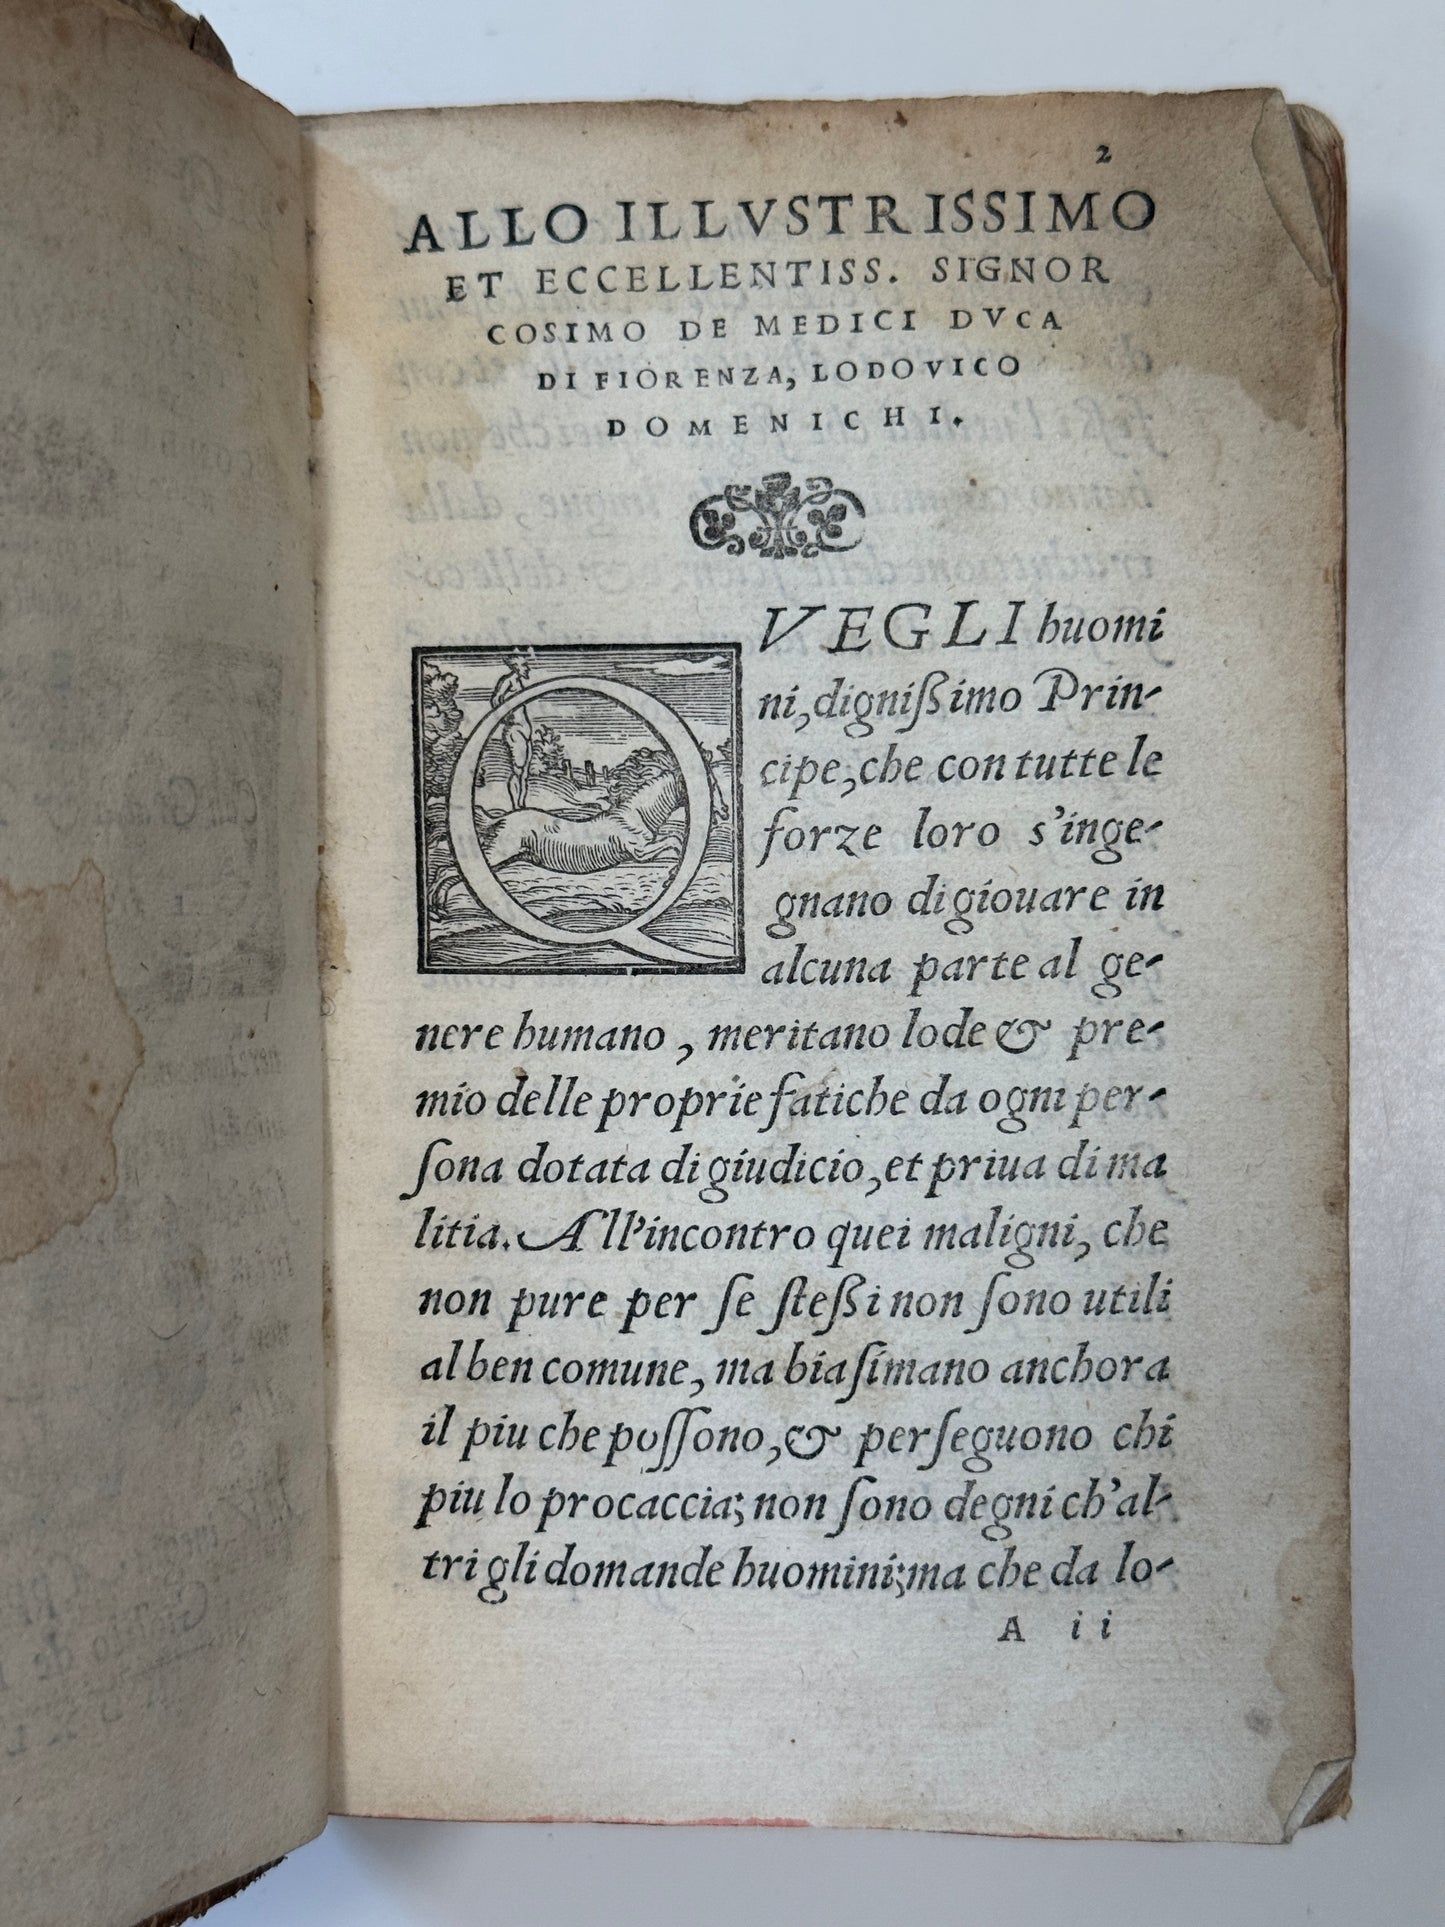 2
ALLO ILLVSTRISSIMO
ET ECCELLENTISS. SIGNOR
COSIMO DE MEDICI DVCA
DI FIORENZA, LODOVICO
DOMENICHI.
QVEGLI huomi
ni, digniſſimo Prin-
cipe, che con tutte le
forze loro s'inge-
gnano di giouare in
alcuna parte al ge-
nere humano, meritano lode & pre-
mio delle proprie fatiche da ogni per-
ſona dotata di giudicio, et priua di ma
litia. All'incontro quei maligni, che
non pure per ſe ſteſſi non ſono utili
al ben comune, ma biaſimano anchora
il piu che poſſono, & perſeguono chi
piu lo procaccia; non ſono degni ch'al-
tri gli domande huomini; ma che da lo-
A ii